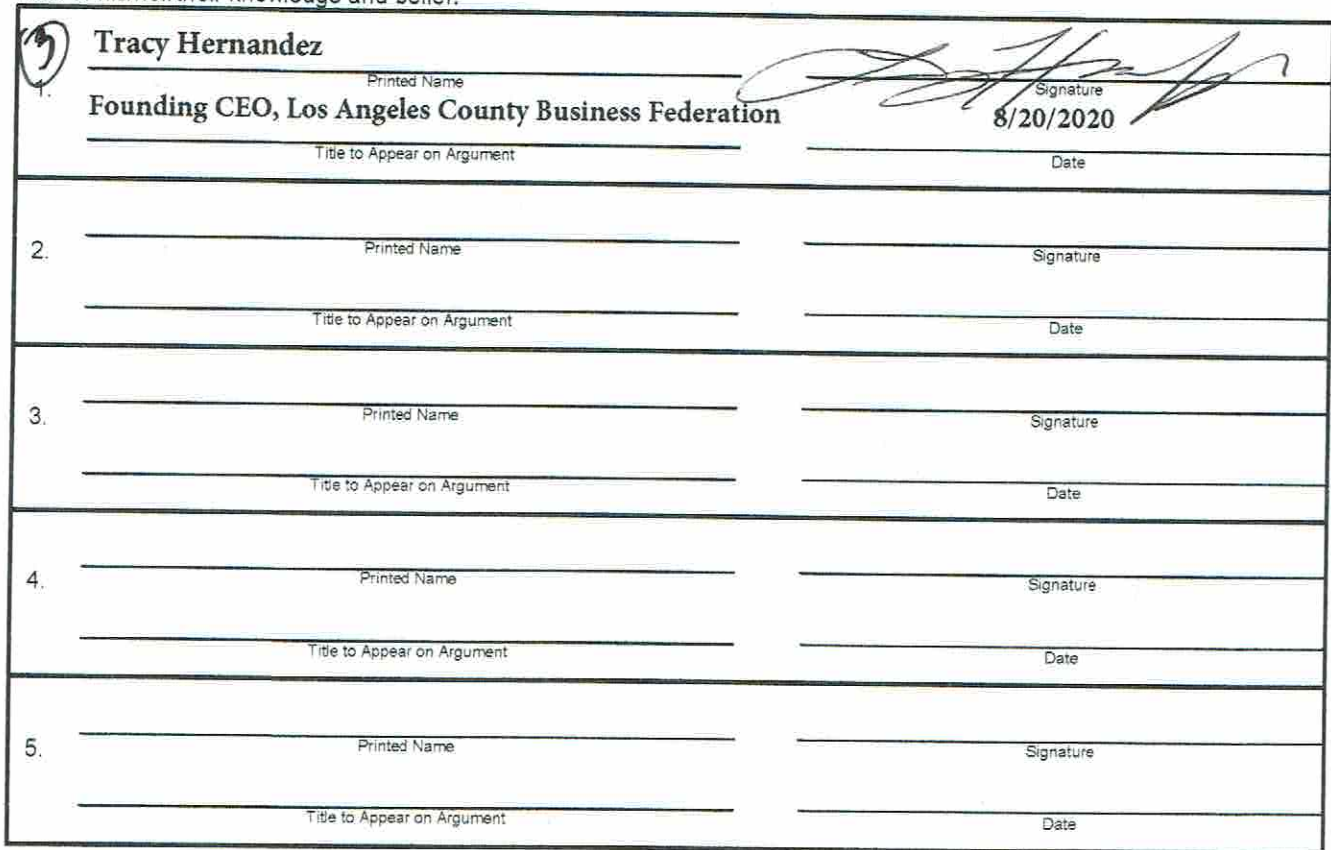 their knowledge and belief.
3
1.
Tracy Hernandez
Printed Name
Signature
Founding CEO, Los Angeles County Business Federation
8/20/2020
Title to Appear on Argument
Date
2.
Printed Name
Signature
Title to Appear on Argument
Date
3.
Printed Name
Signature
Title to Appear on Argument
Date
4.
Printed Name
Signature
Title to Appear on Argument
Date
5.
Printed Name
Signature
Title to Appear on Argument
Date